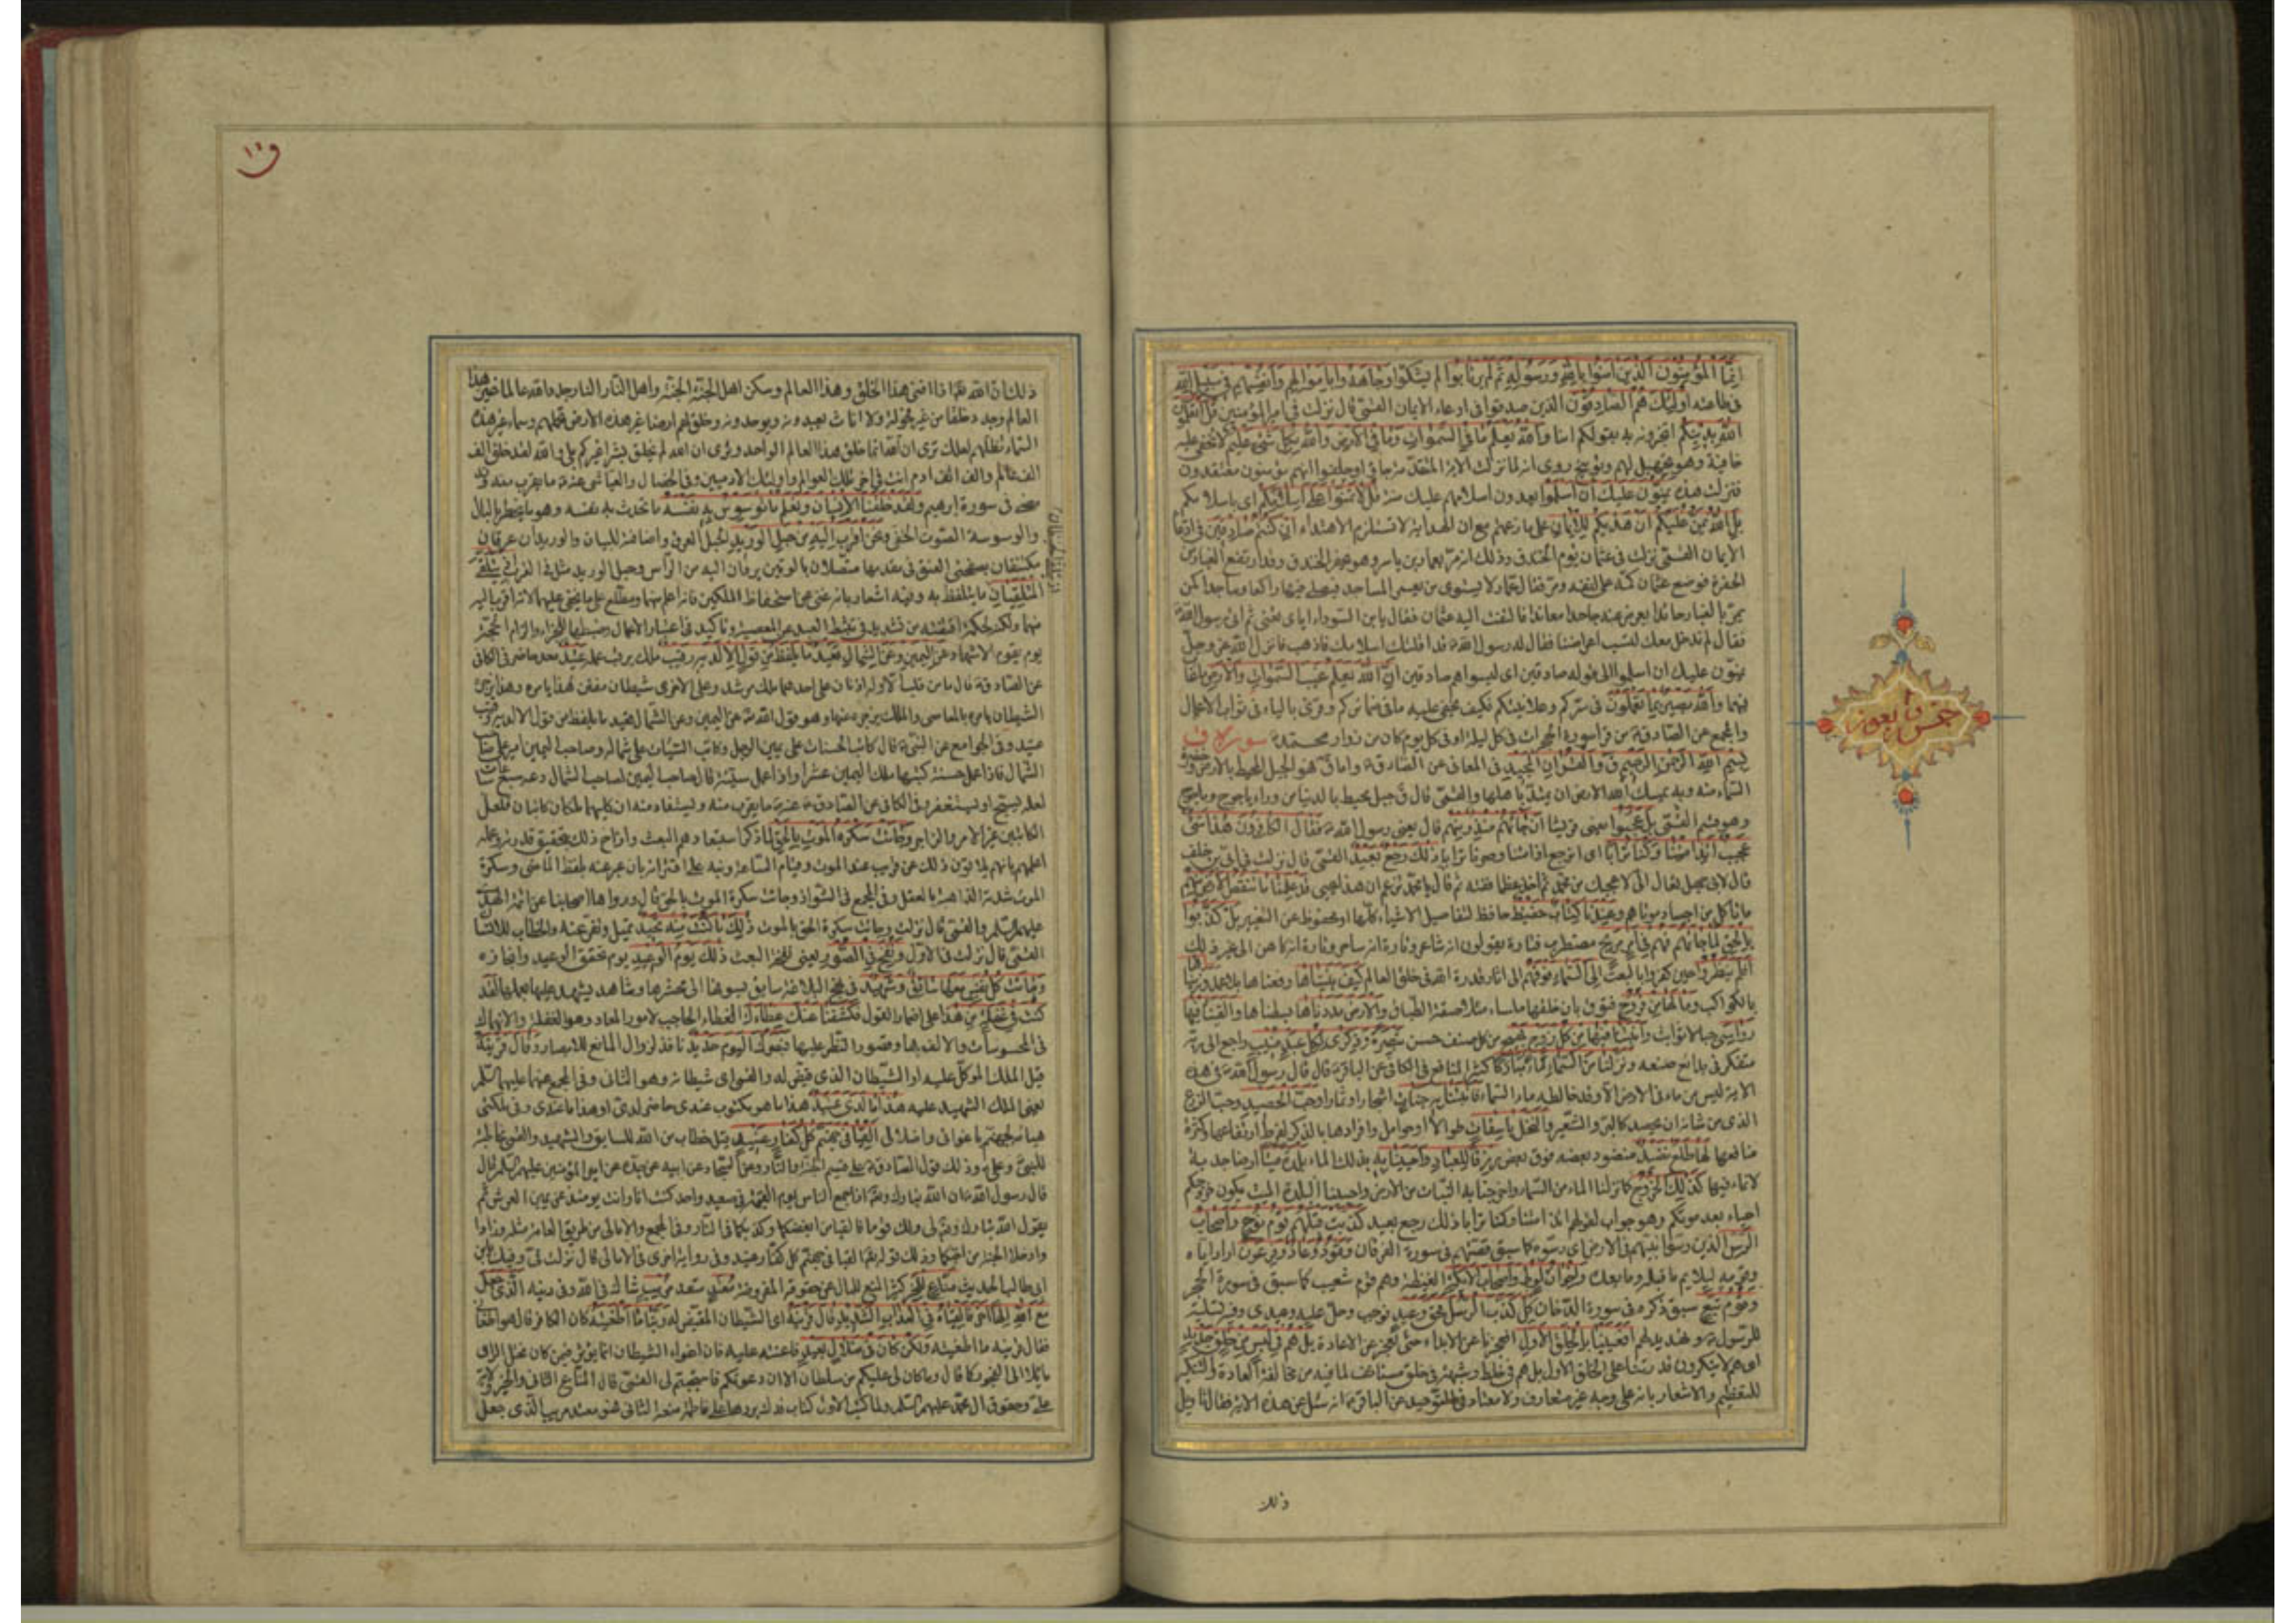 إِنَّمَا الْمُؤْمِنُونَ الَّذِينَ آمَنُوا بِاللَّهِ وَرَسُولِهِ ثُمَّ لَمْ يَرْتَابُوا لم يشكوا وَجَاهَدُوا بِأَمْوَالِهِمْ وَأَنْفُسِهِمْ فِي سَبِيلِ اللَّهِ
فى طاعته أُولَئِكَ هُمُ الصَّادِقُونَ الذين صدقوا فى ادعاء الايمان القمّى قال نزلت فى امير المؤمنين قُلْ أَتُعَلِّمُونَ
اللَّهَ بِدِينِكُمْ اتخبرونه به بقولكم امنا وَاللَّهُ يَعْلَمُ مَا فِي السَّمَوَاتِ وَمَا فِي الْأَرْضِ وَاللَّهُ بِكُلِّ شَيْءٍ عَلِيمٌ لا يخفى عليه
خافية وهو تجهيل لهم وتوبيخ روى انه لما نزلت الاية المتقدمة جاؤا وحلفوا انهم مؤمنون معتقدون
فنزلت هذه يَمُنُّونَ عَلَيْكَ أَنْ أَسْلَمُوا يعدون اسلامهم عليك منة قُلْ لَا تَمُنُّوا عَلَيَّ إِسْلَامَكُمْ اى باسلامكم
بَلِ اللَّهُ يَمُنُّ عَلَيْكُمْ أَنْ هَدَاكُمْ لِلْإِيمَانِ على ما زعمتم مع ان الهداية لا تستلزم الاهتداء إِنْ كُنْتُمْ صَادِقِينَ فى ادعاء
الايمان القمّى نزلت فى عثمان يوم الخندق وذلك انه مرّ بعمار بن ياسر وهو يحفر الخندق وقد ارتفع الغبار من
الحفرة فوضع عثمان كمّه على انفه ومرّ فقال عمار لا يستوى من يعمر المساجد فيصلى فيها راكعا وساجدا كمن
يمرّ بالغبار حائدا يعرض عنه جاحدا معاندا فالتفت اليه عثمان فقال يابن السوداء اياى تعنى ثم اتى رسول الله
فقال له لم ندخل معك لتسب اعراضنا فقال له رسول الله قد اقلتك اسلامك فاذهب فانزل الله عز وجل
يمنون عليك ان اسلموا الى قوله صادقين اى ليسوا هم صادقين إِنَّ اللَّهَ يَعْلَمُ غَيْبَ السَّمَوَاتِ وَالْأَرْضِ ما غاب
فيهما وَاللَّهُ بَصِيرٌ بِمَا تَعْمَلُونَ فى سركم وعلانيتكم فكيف يخفى عليه ما فى ضمائركم وقرئ بالياء فى ثواب الاعمال
والمجمع عن الصادق من قرأ سورة الحجرات فى كل ليلة او فى كل يوم كان من زوار محمد سورة ق
بِسْمِ اللَّهِ الرَّحْمَنِ الرَّحِيمِ ق وَالْقُرْآنِ الْمَجِيدِ فى المعانى عن الصادق واما ق فهو الجبل المحيط بالارض وخضرة
السماء منه وبه يمسك الله الارض ان تميد باهلها والقمّى قال ق جبل محيط بالدنيا من وراء ياجوج وماجوج
وهو قسم القمّى بَلْ عَجِبُوا يعنى قريشا أَنْ جَاءَهُمْ مُنْذِرٌ مِنْهُمْ قال يعنى رسول الله فَقَالَ الْكَافِرُونَ هَذَا شَيْءٌ
عَجِيبٌ أَئِذَا مِتْنَا وَكُنَّا تُرَابًا اى انرجع اذا متنا وصرنا ترابا ذَلِكَ رَجْعٌ بَعِيدٌ القمّى قال نزلت فى ابى بن خلف
قال لابى جهل تعال الى لاعجبك من محمد ثم اخذ عظما ففته ثم قال يا محمد تزعم ان هذا يحيى قَدْ عَلِمْنَا مَا تَنْقُصُ الْأَرْضُ مِنْهُمْ
ما تاكل من اجساد موتاهم وَعِنْدَنَا كِتَابٌ حَفِيظٌ حافظ لتفاصيل الاشياء كلها او محفوظ عن التغيير بَلْ كَذَّبُوا
بِالْحَقِّ لَمَّا جَاءَهُمْ فَهُمْ فِي أَمْرٍ مَرِيجٍ مضطرب فتارة يقولون انه شاعر وتارة انه ساحر وتارة انه كاهن الى غير ذلك
أَفَلَمْ يَنْظُرُوا حين كفروا بالبعث إِلَى السَّمَاءِ فَوْقَهُمْ الى اثار قدرة الله فى خلق العالم كَيْفَ بَنَيْنَاهَا رفعناها بلا عمد وَزَيَّنَّاهَا
بالكواكب وَمَا لَهَا مِنْ فُرُوجٍ فتوق بان خلقها ملساء متلاصقة الطباق وَالْأَرْضَ مَدَدْنَاهَا بسطناها وَأَلْقَيْنَا فِيهَا
رَوَاسِيَ جبالا ثوابت وَأَنْبَتْنَا فِيهَا مِنْ كُلِّ زَوْجٍ بَهِيجٍ من كل صنف حسن تَبْصِرَةً وَذِكْرَى لِكُلِّ عَبْدٍ مُنِيبٍ راجع الى ربه
متفكر فى بدائع صنعه وَنَزَّلْنَا مِنَ السَّمَاءِ مَاءً مُبَارَكًا كثير المنافع فى الكافى عن الباقر قال قال رسول الله فى هذه
الاية ليس من ماء فى الارض الا وقد خالطه ماء السماء فَأَنْبَتْنَا بِهِ جَنَّاتٍ اشجارا وثمارا وَحَبَّ الْحَصِيدِ وحب الزرع
الذى من شانه ان يحصد كالبرّ والشعير وَالنَّخْلَ بَاسِقَاتٍ طوالا او حوامل وافرادها بالذكر لفرط ارتفاعها وكثرة
منافعها لَهَا طَلْعٌ نَضِيدٌ منضود بعضه فوق بعض رِزْقًا لِلْعِبَادِ وَأَحْيَيْنَا بِهِ بذلك الماء بَلْدَةً مَيْتًا ارضا جدبة
لا نماء فيها كَذَلِكَ الْخُرُوجُ كما نزلنا الماء من السماء واخرجنا به النبات من الارض واحيينا البلدة الميت يكون خروجكم
احياء بعد موتكم وهو جواب لقولهم ائذا متنا وكنا ترابا ذلك رجع بعيد كَذَّبَتْ قَبْلَهُمْ قَوْمُ نُوحٍ وَأَصْحَابُ
الرَّسِّ الذين رسّوا نبيهم فى الارض اى رسّوه كما سبق قصتهم فى سورة الفرقان وَثَمُودُ وَعَادٌ وَفِرْعَوْنُ اراد اياه
وقومه ليلايم ما قبله وما بعده وَإِخْوَانُ لُوطٍ وَأَصْحَابُ الْأَيْكَةِ الغيضة وهم قوم شعيب كما سبق فى سورة الحجر
وَقَوْمُ تُبَّعٍ سبق ذكره فى سورة الدخان كُلٌّ كَذَّبَ الرُّسُلَ فَحَقَّ وَعِيدِ فوجب وحلّ عليه وعيدى وفيه تسلية
للرسول وتهديد لهم أَفَعَيِينَا بِالْخَلْقِ الْأَوَّلِ افعجزنا عن الابداء حتى نعجز عن الاعادة بَلْ هُمْ فِي لَبْسٍ مِنْ خَلْقٍ جَدِيدٍ
اى هم لا ينكرون قدرتنا على الخلق الاول بل هم فى خلط وشبهة فى خلق مستانف لما فيه من مخالفة العادة والتنكير
للتعظيم والاشعار بانه على وجه غير متعارف ولا معتاد فى التوحيد عن الباقر انه سئل عن هذه الاية فقال تاويل
ذلك
حزب وأبعون
ق
ذلك ان الله تعالى اذا افنى هذا الخلق وهذا العالم وسكن اهل الجنة الجنة واهل النار النار جدد الله عالما غير هذا
العالم وجدد خلقا من غير فحولة ولا اناث يعبدونه ويوحدونه وخلق لهم ارضا غير هذه الارض تحملهم وسماء غير هذه
السماء تظلهم لعلك ترى ان الله انما خلق هذا العالم الواحد وترى ان الله لم يخلق بشرا غيركم بلى والله لقد خلق الف
الف عالم والف الف ادم انت فى اخر تلك العوالم واولئك الادميين وفى الخصال والعياشى عنه ما يقرب منه وقد
مضى فى سورة ابرهيم وَلَقَدْ خَلَقْنَا الْإِنْسَانَ وَنَعْلَمُ مَا تُوَسْوِسُ بِهِ نَفْسُهُ ما تحدث به نفسه وهو ما يخطر بالبال
والوسوسة الصوت الخفى وَنَحْنُ أَقْرَبُ إِلَيْهِ مِنْ حَبْلِ الْوَرِيدِ الحبل العرق واضافته للبيان والوريدان عرقان
مكتنفان بصفحتى العنق فى مقدمها متصلان بالوتين يردان اليه من الراس وحبل الوريد مثل فى القرب إِذْ يَتَلَقَّى
الْمُتَلَقِّيَانِ ما يتلفظ به وفيه اشعار بانه غنى عن استحفاظ الملكين فانه اعلم منهما ومطلع على ما يخفى عليهما لانه اقرب اليه
منهما ولكنه لحكمة اقتضته من تشديد فى تثبط العبد عن المعصية وتاكيد فى اعتبار الاعمال وضبطها للجزاء والزام الحجة
يوم يقوم الاشهاد عَنِ الْيَمِينِ وَعَنِ الشِّمَالِ قَعِيدٌ مَا يَلْفِظُ مِنْ قَوْلٍ إِلَّا لَدَيْهِ رَقِيبٌ ملك يرقب عمله عَتِيدٌ معد حاضر فى الكافى
عن الصادق قال ما من قلب الا وله اذنان على احدهما ملك مرشد وعلى الاخرى شيطان مفتن هذا يامره وهذا يزجره
الشيطان يامره بالمعاصى والملك يزجره عنها وهو قول الله عن اليمين وعن الشمال قعيد ما يلفظ من قول الا لديه رقيب
عتيد وفى الجوامع عن النبى قال كاتب الحسنات على يمين الرجل وكاتب السيئات على شماله وصاحب اليمين امير على صاحب
الشمال فاذا عمل حسنة كتبها ملك اليمين عشرا واذا عمل سيئة قال صاحب اليمين لصاحب الشمال دعه سبع ساعات
لعله يسبح او يستغفر وفى الكافى عن الصادق عنه ما يقرب منه ويستفاد منه ان كليهما ملكان كاتبان ولعل
الكاتبين غير الامر والزاجر وَجَاءَتْ سَكْرَةُ الْمَوْتِ بِالْحَقِّ لما ذكر استبعادهم البعث وازاح ذلك بتحقيق قدرته وعلمه
اعلمهم بانهم يلاقون ذلك عن قريب عند الموت وقيام الساعة ونبه على اقترابه بان عبر عنه بلفظ الماضى وسكرة
الموت شدته الذاهبة بالعقل وفى المجمع فى الشواذ وجاءت سكرة الحق بالموت قال ورواها اصحابنا عن ائمة الهدى
عليهم السلام والقمّى قال نزلت وجاءت سكرة الحق بالموت ذَلِكَ مَا كُنْتَ مِنْهُ تَحِيدُ تميل وتفر عنه والخطاب للانسان
القمّى قال نزلت فى الاول وَنُفِخَ فِي الصُّورِ يعنى نفخة البعث ذَلِكَ يَوْمُ الْوَعِيدِ يوم تحقق الوعيد وانجازه
وَجَاءَتْ كُلُّ نَفْسٍ مَعَهَا سَائِقٌ وَشَهِيدٌ فى نهج البلاغة سائق يسوقها الى محشرها وشاهد يشهد عليها بعملها لَقَدْ
كُنْتَ فِي غَفْلَةٍ مِنْ هَذَا على اضمار القول فَكَشَفْنَا عَنْكَ غِطَاءَكَ الغطاء الحاجب لامور المعاد وهو الغفلة والانهماك
فى المحسوسات والالف بها وقصور النظر عليها فَبَصَرُكَ الْيَوْمَ حَدِيدٌ نافذ لزوال المانع للابصار وَقَالَ قَرِينُهُ
قيل الملك الموكل عليه او الشيطان الذى قيض له والقمّى اى شيطانه وهو الثانى وفى المجمع عنهما عليهما السلام
يعنى الملك الشهيد عليه هَذَا مَا لَدَيَّ عَتِيدٌ هذا ما هو مكتوب عندى حاضر لدى او هذا ما عندى وفى ملكتى
هيأته لجهنم باغوائى واضلالى أَلْقِيَا فِي جَهَنَّمَ كُلَّ كَفَّارٍ عَنِيدٍ قيل خطاب من الله للسائق والشهيد والقمّى مخاطبة
للنبى وعلى وذلك قول الصادق على قسيم الجنة والنار وعن السجاد عن ابيه عن جده عن امير المؤمنين عليهم السلام قال
قال رسول الله ان الله تبارك وتعالى اذا جمع الناس يوم القيمة فى صعيد واحد كنت انا وانت يومئذ عن يمين العرش ثم
يقول الله تبارك وتعالى لى ولك قوما فالقيا من ابغضكما وكذبكما فى النار وفى المجمع والامالى من طريق العامة مثله وزادا
وادخلا الجنة من احبكما وذلك قوله تعالى القيا فى جهنم كل كفار عنيد وفى رواية اخرى فى الامالى قال نزلت فىّ وفيك يابن
ابى طالب الحديث مَنَّاعٍ لِلْخَيْرِ كثير المنع للمال عن حقوقه المفروضة مُعْتَدٍ متعد مُرِيبٍ شاك فى الله وفى دينه الَّذِي جَعَلَ
مَعَ اللَّهِ إِلَهًا آخَرَ فَأَلْقِيَاهُ فِي الْعَذَابِ الشَّدِيدِ قَالَ قَرِينُهُ اى الشيطان المقيض له رَبَّنَا مَا أَطْغَيْتُهُ كان الكافر قال هو اطغانى
فقال قرينه ما اطغيته وَلَكِنْ كَانَ فِي ضَلَالٍ بَعِيدٍ فاعنته عليه فان اغواء الشيطان انما يؤثر فيمن كان مختل الراى
مائلا الى الفجور كما قال وما كان لى عليكم من سلطان الا ان دعوتكم فاستجبتم لى القمّى قال المناع الثانى والخير ولاية
على وحقوق ال محمد عليهم السلام ولما كتب الاول كتاب فدك يردها على فاطمة منعه الثانى فهو معتد مريب الذى جعل